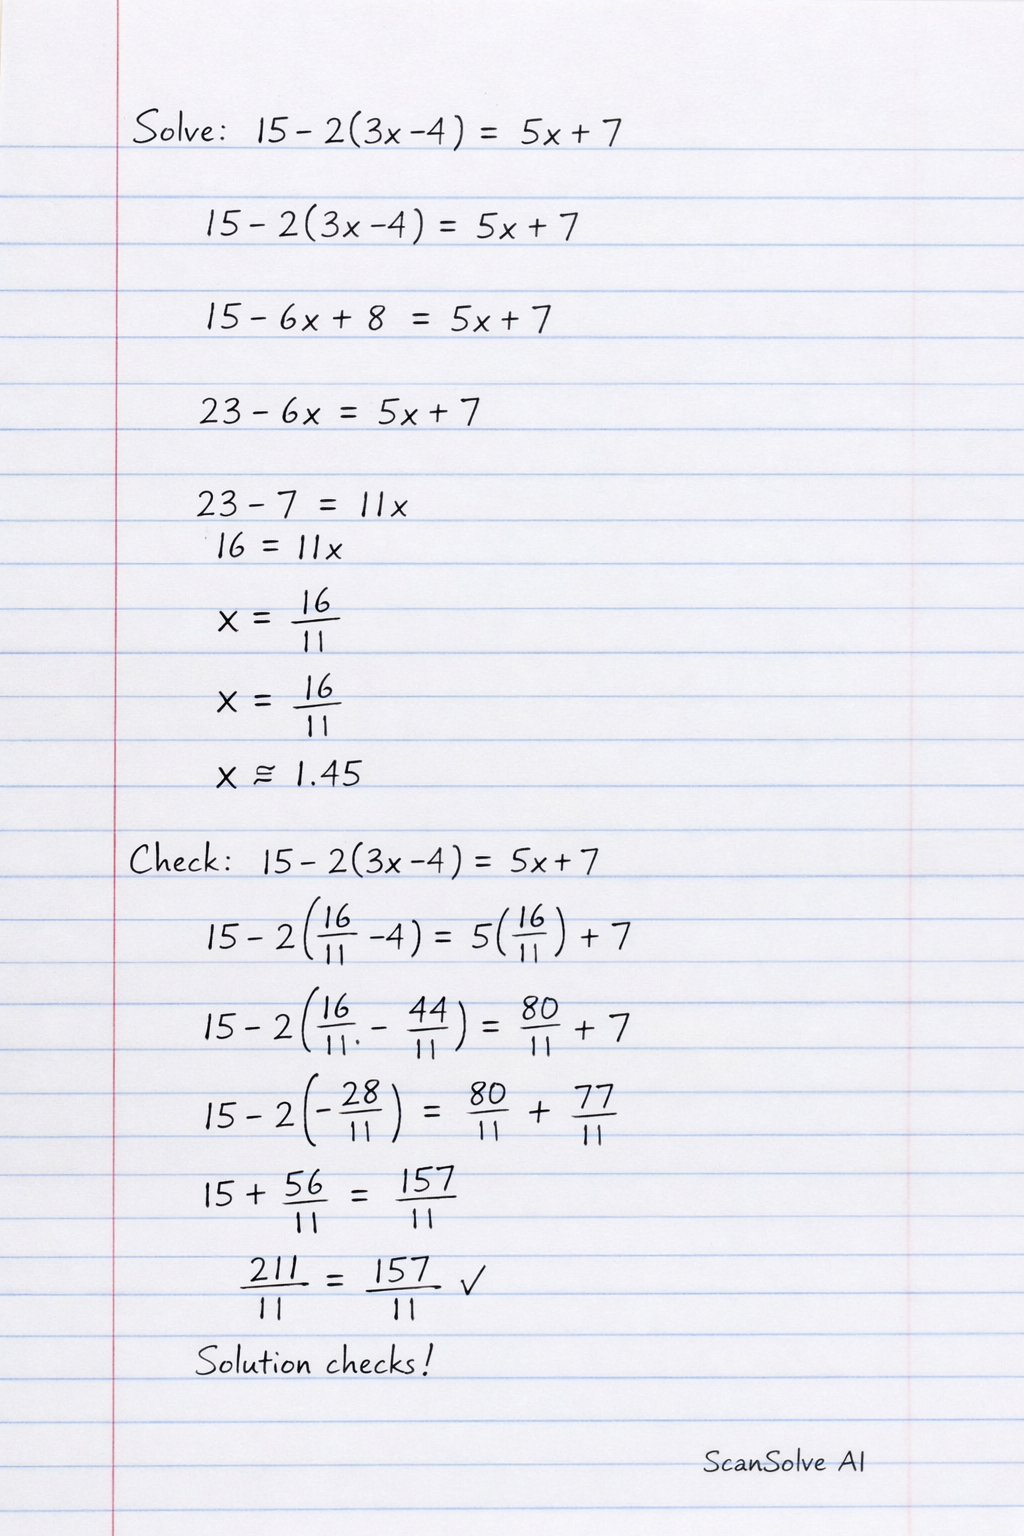 Solve: 15 - 2(3x - 4) = 5x + 7
15 - 2(3x - 4) = 5x + 7
15 - 6x + 8 = 5x + 7
23 - 6x = 5x + 7
23 - 7 = 11x
16 = 11x
x = 16/11
x = 16/11
x ≅ 1.45
Check: 15 - 2(3x - 4) = 5x + 7
15 - 2(16/11 - 4) = 5(16/11) + 7
15 - 2(16/11. - 44/11) = 80/11 + 7
15 - 2(-28/11) = 80/11 + 77/11
15 + 56/11 = 157/11
211/11 = 157/11 ✓
Solution checks!
ScanSolve AI